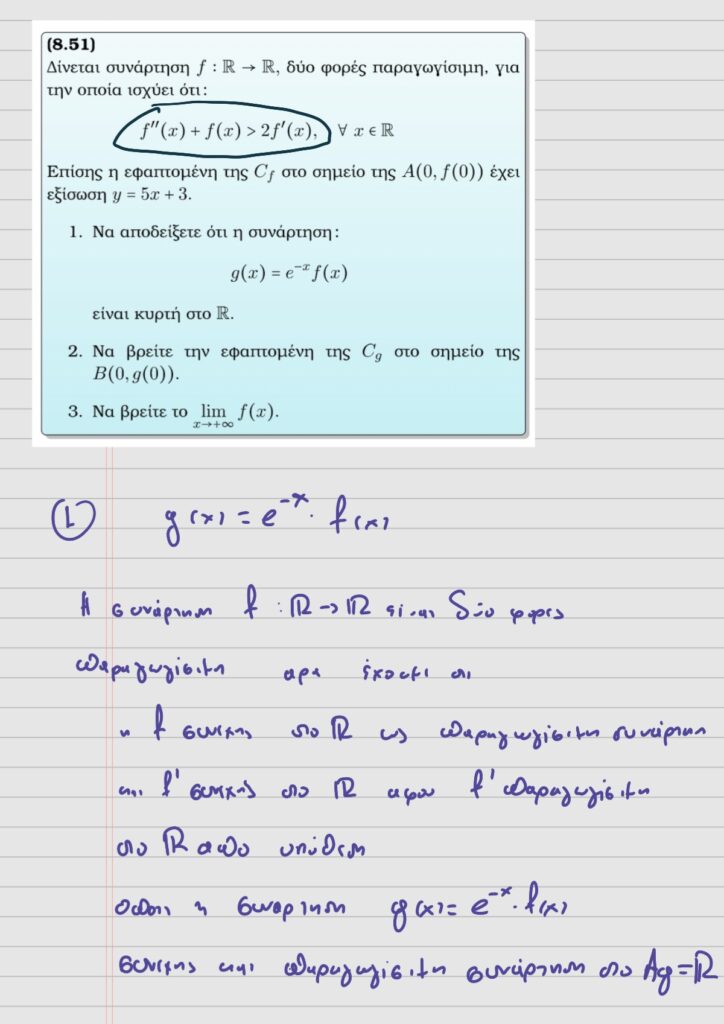 (8.51)
Δίνεται συνάρτηση f : ℝ → ℝ, δύο φορές παραγωγίσιμη, για
την οποία ισχύει ότι:
f″(x) + f(x) > 2f′(x), ∀ x ∈ ℝ
Επίσης η εφαπτομένη της C_f στο σημείο της A(0, f(0)) έχει
εξίσωση y = 5x + 3.
1. Να αποδείξετε ότι η συνάρτηση:
g(x) = e^{-x} f(x)
είναι κυρτή στο ℝ.
2. Να βρείτε την εφαπτομένη της C_g στο σημείο της
B(0, g(0)).
3. Να βρείτε το lim_{x→+∞} f(x).
① g(x) = e^{-x} · f(x)
Η συνάρτηση f : ℝ → ℝ είναι δύο φορες
παραγωγίσιμη αρα έχουμε οτι
η f συνεχης στο ℝ ως παραγωγίσιμη συνάρτηση
και f′ συνεχής στο ℝ αφου f′ παραγωγίσιμη
στο ℝ απο υπόθεση
οποτε η συναρτηση g(x) = e^{-x} · f(x)
συνεχης και παραγωγίσιμη συνάρτηση στο Ag = ℝ